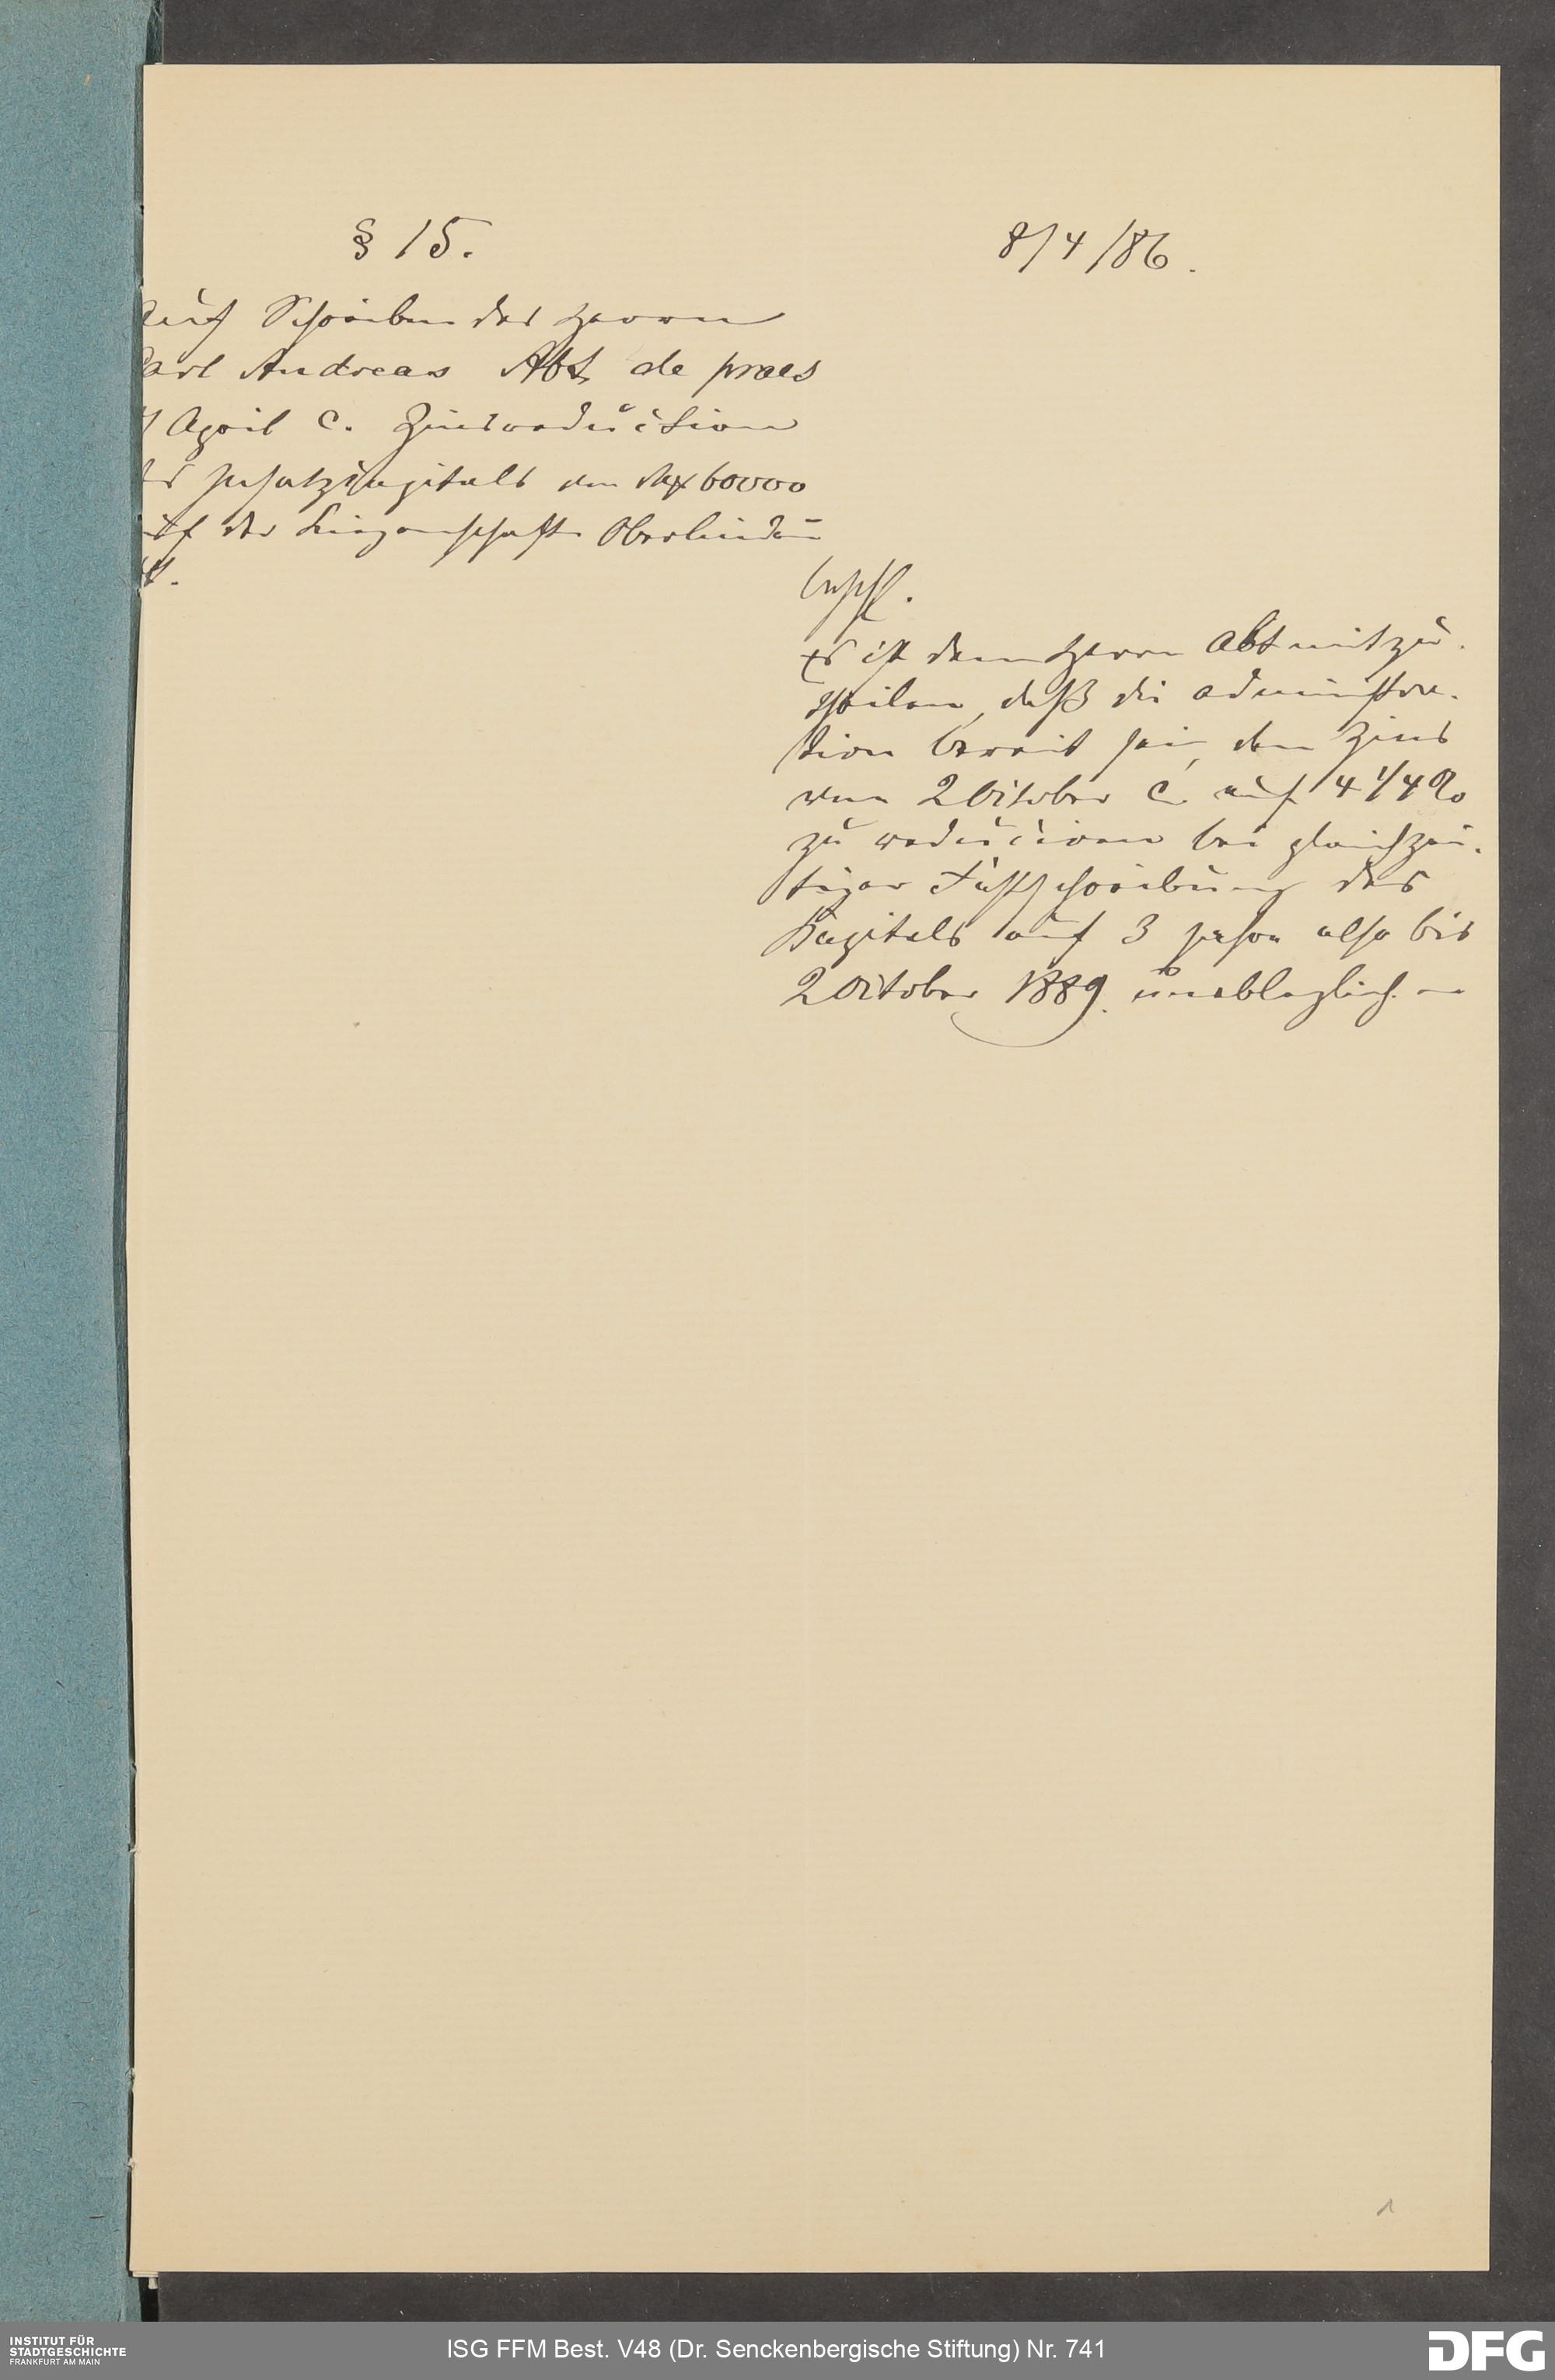 § 15.
8/4/86.
Auf Schreiben des Herrn
Carl Andreas Abt de praes
April c. Zinsreduction
des Insatzkapitals von Mk 60000
auf der Liegenschaft Oberlindau
Beschl.
Es ist dem Herrn Abt mitzu-
theilen, daß die Administra-
tion bereit sei, den Zins
vom 2 October c. auf 4 1/4 %
zu reduciren bei gleichzei-
tiger Festschreibung des
Kapitals auf 3 Jahre also bis
2 October 1889. unableglich
1
INSTITUT FÜR
STADTGESCHICHTE
FRANKFURT AM MAIN
ISG FFM Best. V48 (Dr. Senckenbergische Stiftung) Nr. 741
DFG